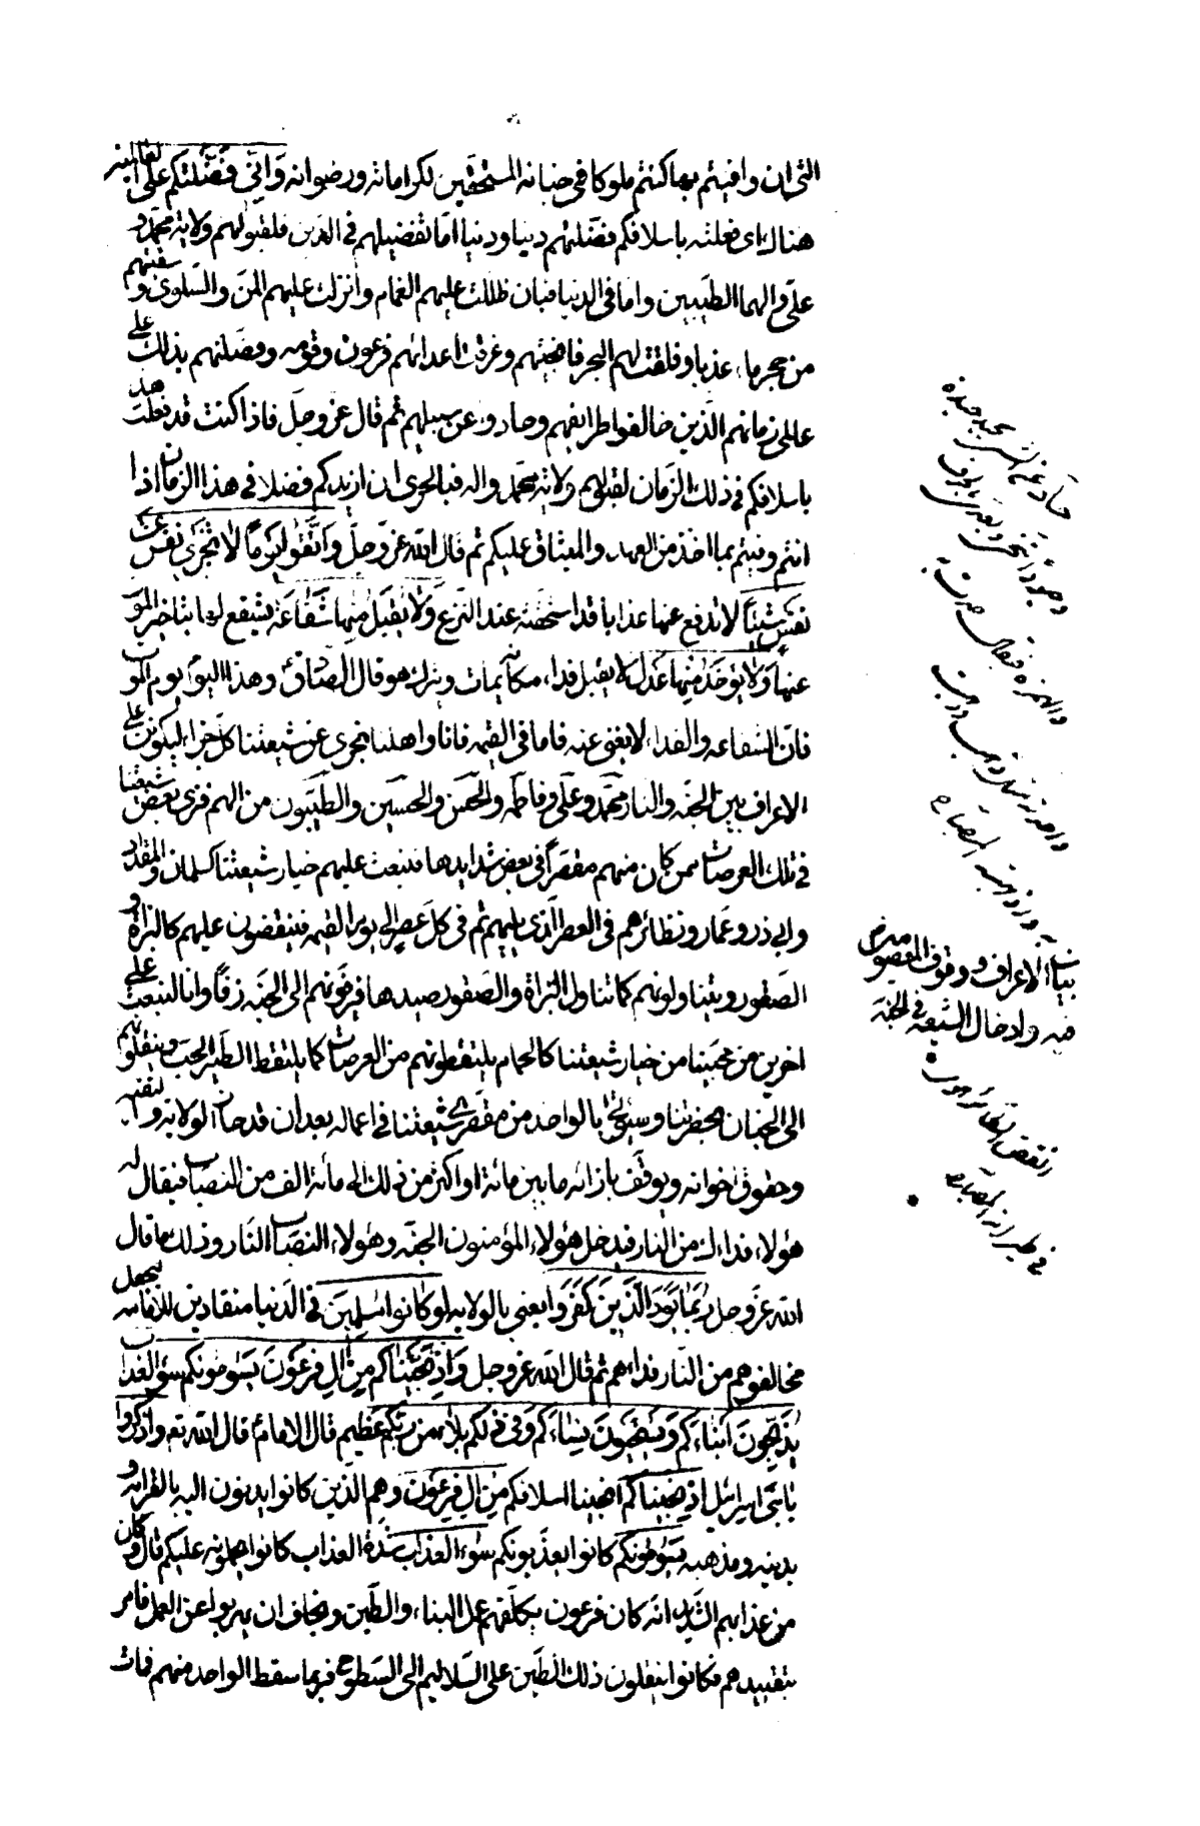 التي ان وافيتم بها كنتم ملوكا في جنانه المستحقين لكراماته ورضوانه وَأَنِّي فَضَّلْتُكُمْ عَلَى العالمين
هناك اى فعلته باسلافكم فضلتهم دينا ودنيا اما تفضيلهم في الدين فلقبولهم ولاية محمد و
علي والهما الطيبين واما في الدنيا فبان ظللت عليهم الغمام وانزلت عليهم المن والسلوى و سقيتهم
من حجر ماء عذبا وفلقت لهم البحر فانجيتهم وغرقت اعدائهم فرعون وقومه وفضلتهم بذلك على
عالمي زمانهم الذين خالفوا طرائقهم وحادوا عن سبيلهم ثم قال عز وجل فاذا كنت قد فعلت هذا
باسلافكم في ذلك الزمان لقبولهم ولاية محمد واله فبالحرى ان ازيدكم فضلا في هذا الزمان اذا
انتم وفيتم بما اخذ من العهد والميثاق عليكم ثم قال الله عز وجل وَاتَّقُوا يَوْمًا لَا تَجْزِي نَفْسٌ عَنْ
نَفْسٍ شَيْئًا لا تدفع عنها عذابا قد استحقته عند النزع وَلَا يُقْبَلُ مِنْهَا شَفَاعَةٌ يشفع لها بتاخير الموت
عنها وَلَا يُؤْخَذُ مِنْهَا عَدْلٌ لا يقبل فداء مكانه يمات ويترك هو قال الصادق وهذا اليوم يوم الموت
فان الشفاعه والفداء لا يغنى عنه فاما في القيمه فانا واهلنا نجزى عن شيعتنا كل جزاء ليكونن على
الاعراف بين الجنه والنار محمد وعلي وفاطمه والحسن والحسين والطيبون من الهم فنرى بعض شيعتنا
في تلك العرصات ممن كان منهم مقصرا في بعض شدايدها فنبعث عليهم خيار شيعتنا كسلمان والمقداد
وابي ذر وعمار ونظائرهم في العصر الذي يليهم ثم في كل عصر الى يوم القيمه فينقضون عليهم كالبزاة و
الصقور ويتناولونهم كما تتناول البزاة والصقور صيدها فيزفونهم الى الجنه زفا وانا لنبعث على
اخرين من محبينا من خيار شيعتنا كالحمام يلتقطونهم من العرصات كما يلتقط الطير الحب وينقلونهم
الى الجنان بحضرتنا وسيؤتى بالواحد من مقصرى شيعتنا في اعماله بعد ان قد حاز الولاية و التقيه
وحقوق اخوانه ويوقف بازائه ما بين مائة او اكثر من ذلك الى مائة الف من النصاب فيقال له
هؤلاء فداءك من النار فيدخل هؤلاء المؤمنون الجنه وهؤلاء النصاب النار وذلك ما قال
الله عز وجل رُبَمَا يَوَدُّ الَّذِينَ كَفَرُوا يعنى بالولايه لَوْ كَانُوا مُسْلِمِينَ في الدنيا منقادين للامامه ليجعل
مخالفوهم من النار فداءهم ثم قال الله عز وجل وَإِذْ نَجَّيْنَاكُمْ مِنْ آلِ فِرْعَوْنَ يَسُومُونَكُمْ سُوءَ العذاب
يُذَبِّحُونَ أَبْنَاءَكُمْ وَيَسْتَحْيُونَ نِسَاءَكُمْ وَفِي ذَلِكُمْ بَلَاءٌ مِنْ رَبِّكُمْ عَظِيمٌ قال الامام قال الله تع واذكروا
يا بني اسرائيل إِذْ نَجَّيْنَاكُمْ انجينا اسلافكم مِنْ آلِ فِرْعَوْنَ وهم الذين كانوا يدنون اليه بالقرابه و
بدينه ومذهبه يَسُومُونَكُمْ كانوا يعذبونكم سُوءَ العَذَابِ شدة العذاب كانوا يحملونه عليكم قال وكان
من عذابهم الشديد انه كان فرعون يكلفهم عمل البناء والطين ويخاف ان يهربوا عن العمل فامر
بتقييدهم فكانوا ينقلون ذلك الطين على السلاليم الى السطوح فربما سقط الواحد منهم فمات
بيان الاعراف و وقوف المعصومين
فيه وادخال الشيعه في الجنة